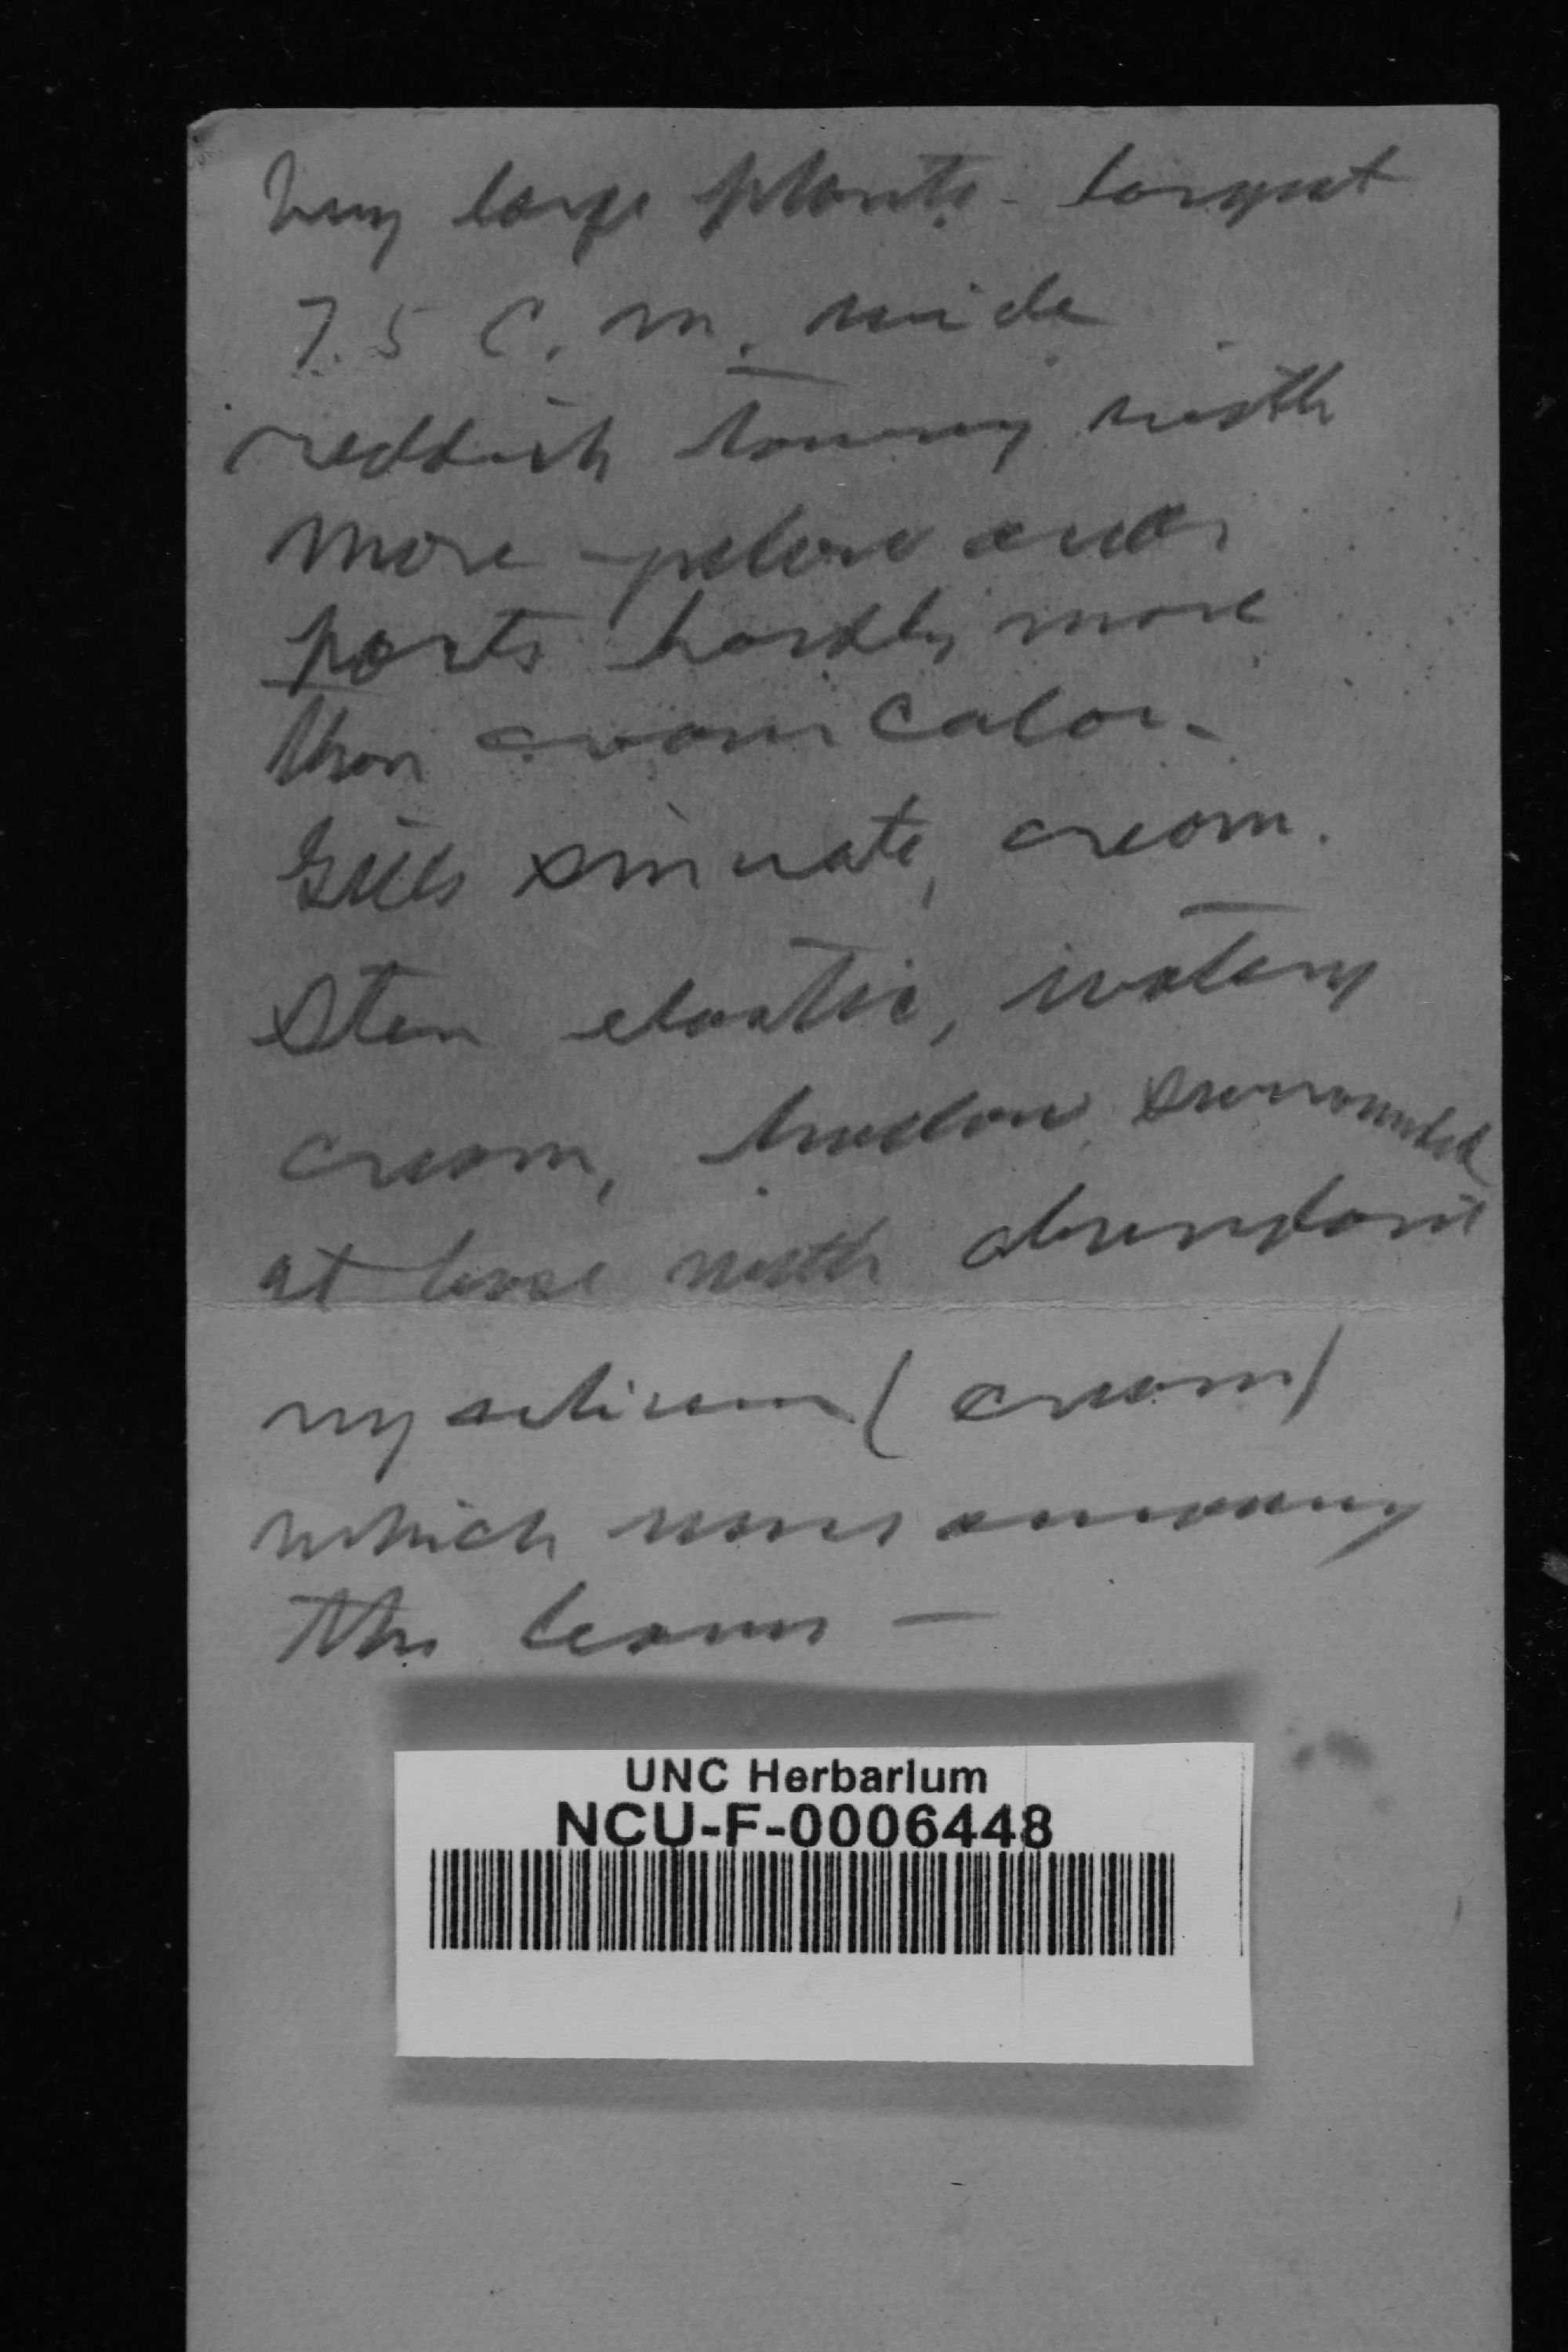 Very large plants - largest
7.5 C.m. wide
reddish tawny with
more
parts hardly more
than cream color.
Gills sinuate, cream.
Stem elastic, watery
cream, hollow, surrounded
at base with abundant
mycelium (cream)
which runs among
the leaves —
UNC Herbarium
NCU-F-0006448